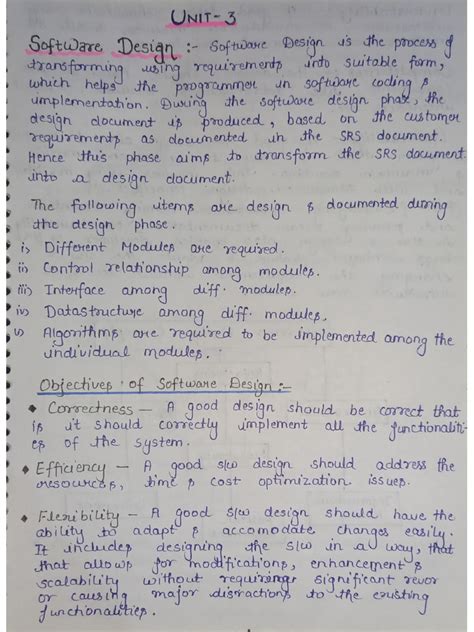 UNIT-3
Software Design :- Software Design is the process of
transforming using requirements into suitable form,
which helps the programmer in software coding &
implementation. During the software design phase, the
design document is produced, based on the customer
requirements as documented in the SRS document.
Hence this phase aims to transform the SRS document
into a design document.
The following items are design & documented during
the design phase.
i) Different Modules are required.
ii) Control relationship among modules.
iii) Interface among diff. modules.
iv) Datastructure among diff. modules.
v) Algorithms are required to be implemented among the
individual modules.
Objectives of Software Design :-
◆ Correctness — A good design should be correct that
is it should correctly implement all the functionaliti-
es of the system.
◆ Efficiency — A good s/w design should address the
resources, time & cost optimization issues.
◆ Flexibility — A good s/w design should have the
ability to adapt & accomodate changes easily.
It includes designing the s/w in a way, that
that allows for modifications, enhancement &
scalability without requiring significant revor
or causing major distractions to the existing
functionalities.